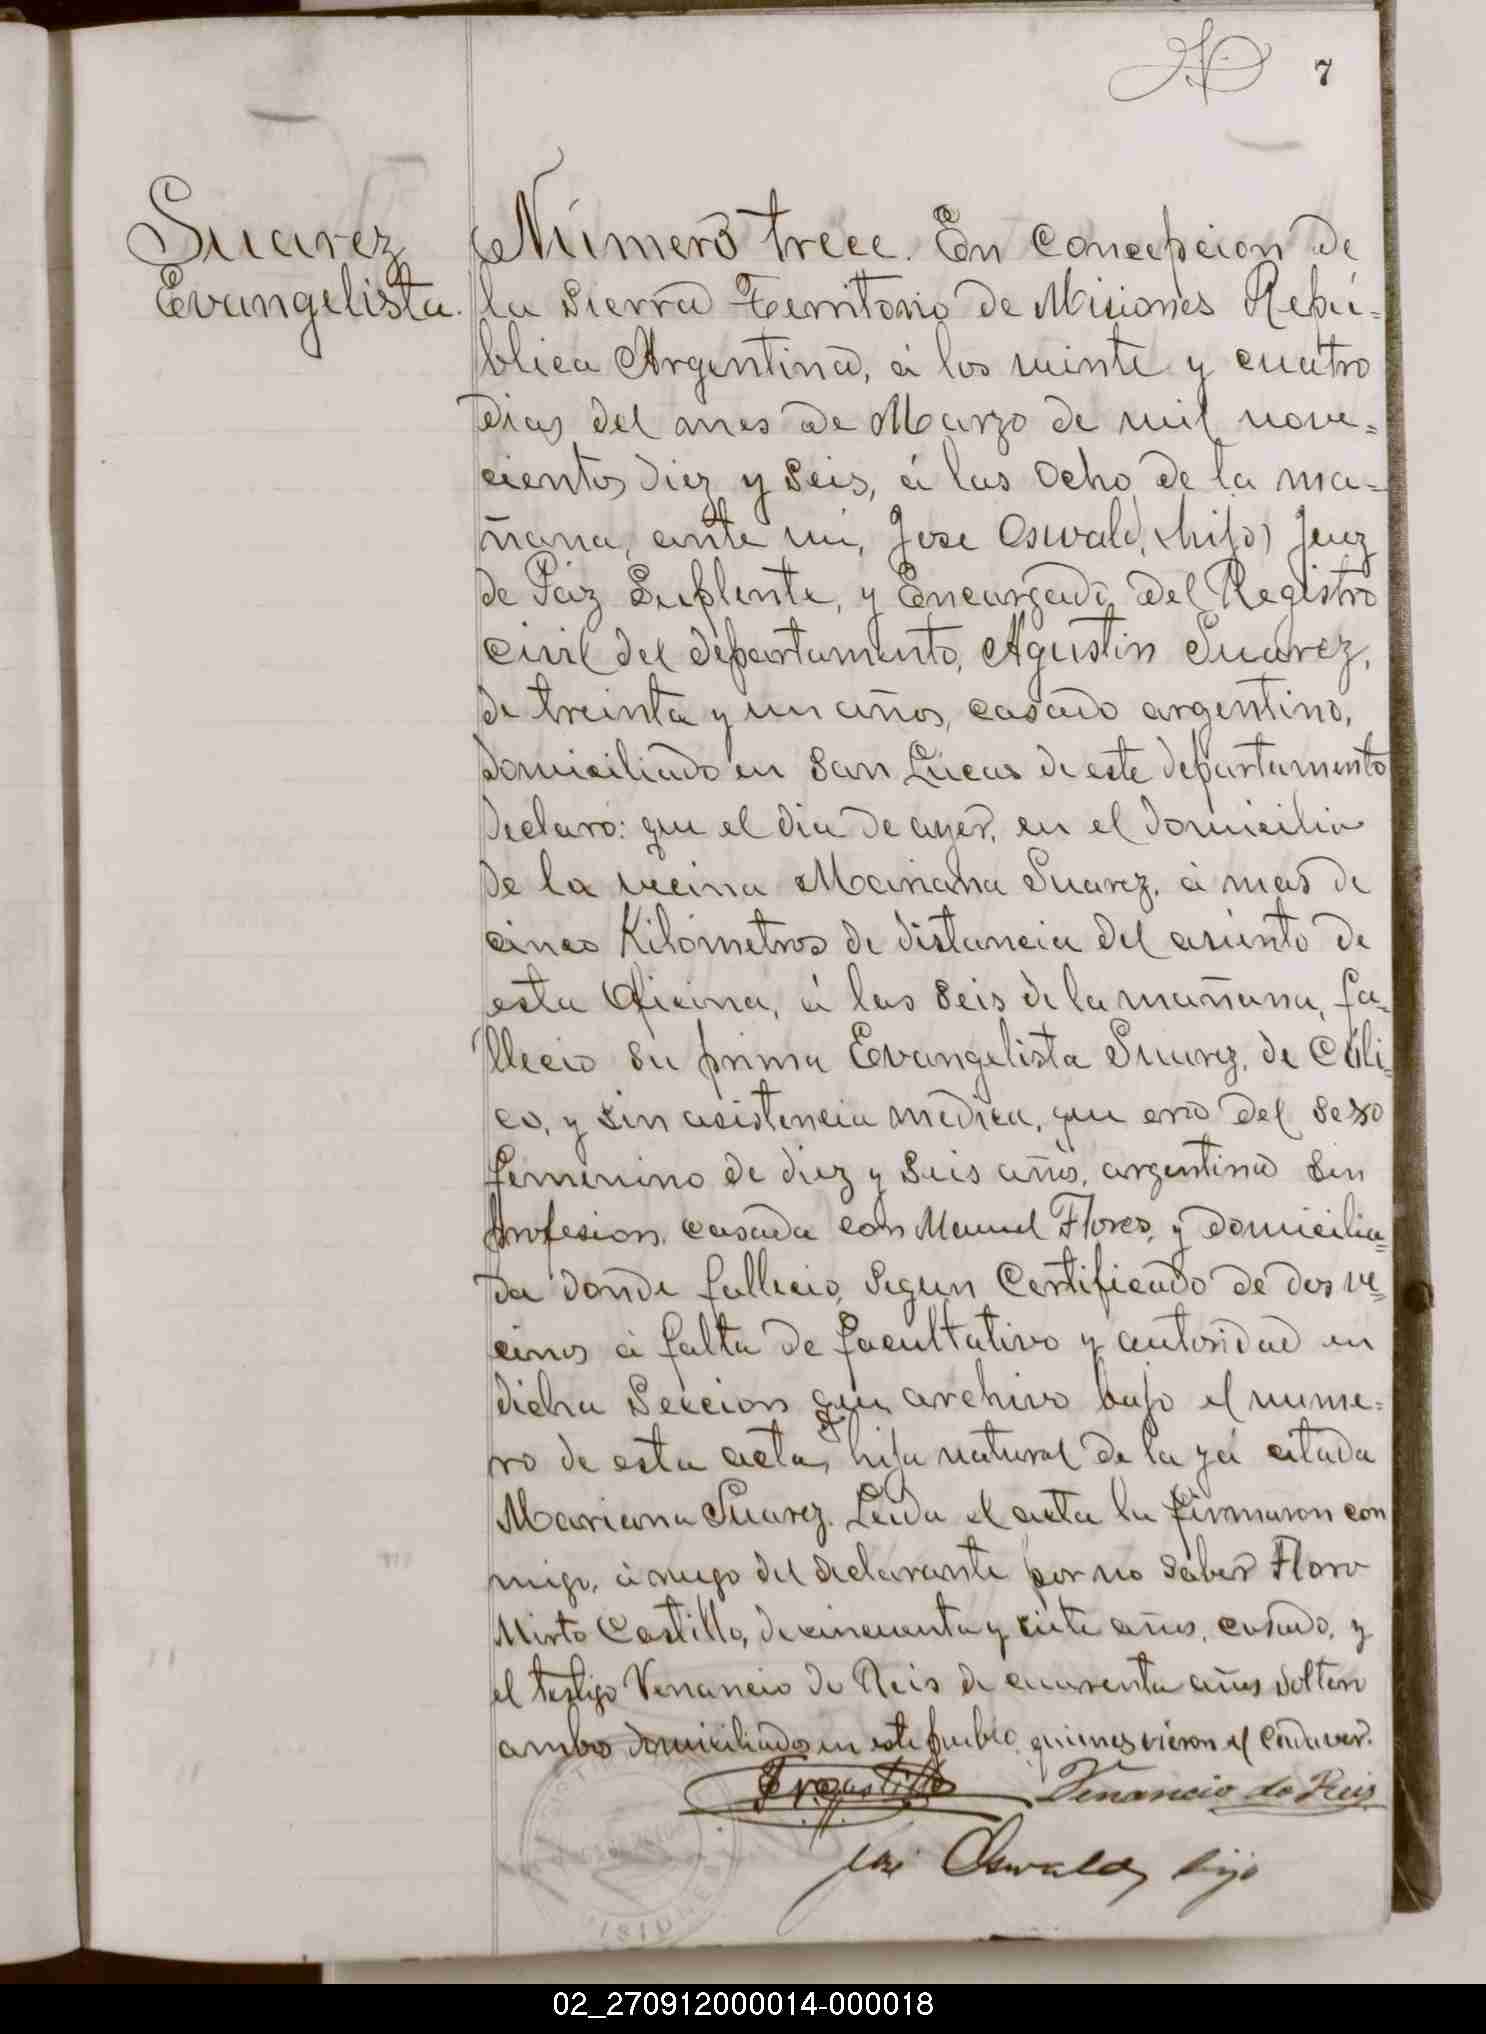 7
Suarez
Evangelista.
Número trece. En Concepcion de
la Sierra Territorio de Misiones Repú=
blica Argentina, á los veinte y cuatro
dias del mes de Marzo de mil nove=
cientos diez y seis, á las ocho de la ma=
ñana, ante mi, Jose Oswald, (hijo) Juez
de Paz Suplente, y Encargado del Registro
Civil del departamento, Agustin Suarez,
de treinta y un años, casado argentino,
domiciliado en San Lucas de este departamento
declaró: que el dia de ayer, en el domicilio
de la vecina Mariana Suarez, á mas de
cinco Kilómetros de distancia del asiento de
esta Oficina, á las seis de la mañana, fa=
llecio su prima Evangelista Suarez, de Cóli=
co, y sin asistencia medica, que era del sexo
femenino de diez y seis años, argentina sin
profesion, casada con Manuel Flores, y domicilia=
da donde fallecio, segun Certificado de dos ve=
cinos á falta de facultativo y autoridad en
dicha Seccion que archivo bajo el nume=
ro de esta acta, hija natural de la yá citada
Mariana Suarez. Leida el acta la firmaron con
migo, á ruego del declarante por no saber Floro
Mirto Castillo, de cincuenta y siete años, casado, y
el testigo Venancio do Reis de cuarenta años soltero
ambos domiciliados en este pueblo, quienes vieron el Cadaver.
Venancio do Reis
José Oswald, hijo
02_270912000014-000018